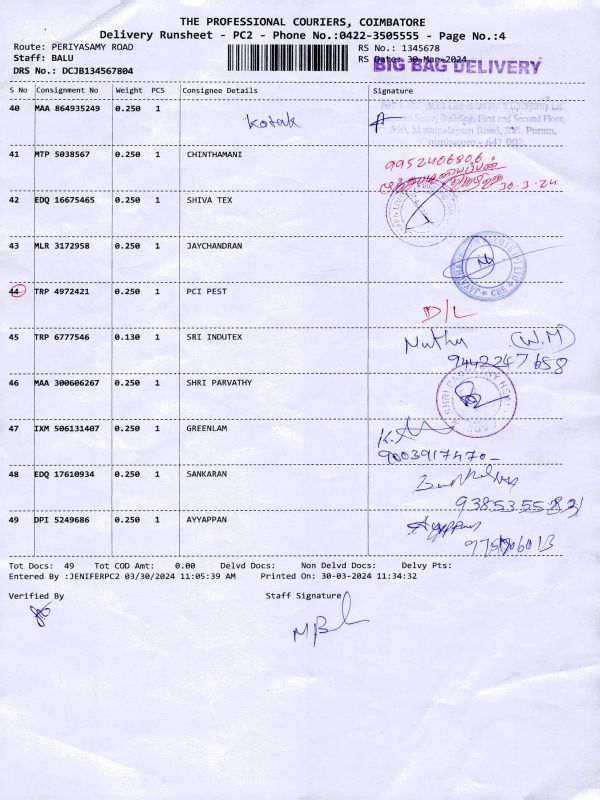 THE PROFESSIONAL COURIERS, COIMBATORE
Delivery Runsheet - PC2 - Phone No.:0422-3505555 - Page No.:4
Route: PERIYASAMY ROAD RS No.: 1345678
Staff: BALU RS Date: 30-Mar-2024
BIG BAG DELIVERY
DRS No.: DCJB134567804
S No Consignment No Weight PCS Consignee Details Signature
40 MAA 864935249 0.250 1 Kotak
Building, First and Second Floor,
Mettupalayam Road, R.S. Puram,
Coimbatore - 641 002
41 MTP 5038567 0.250 1 CHINTHAMANI
9952406806
30.3.24
42 EDQ 16675465 0.250 1 SHIVA TEX
43 MLR 3172958 0.250 1 JAYCHANDRAN
44 TRP 4972421 0.250 1 PCI PEST
D/L
45 TRP 6777546 0.130 1 SRI INDUTEX Muthu (W.M)
9442247658
46 MAA 300606267 0.250 1 SHRI PARVATHY
47 IXM 506131407 0.250 1 GREENLAM
9003917470-
48 EDQ 17610934 0.250 1 SANKARAN
49 DPI 5249686 0.250 1 AYYAPPAN Ayyappan
Tot Docs: 49 Tot COD Amt: 0.00 Delvd Docs: Non Delvd Docs: Delvy Pts:
Entered By :JENIFERPC2 03/30/2024 11:05:39 AM Printed On: 30-03-2024 11:34:32
Verified By Staff Signature